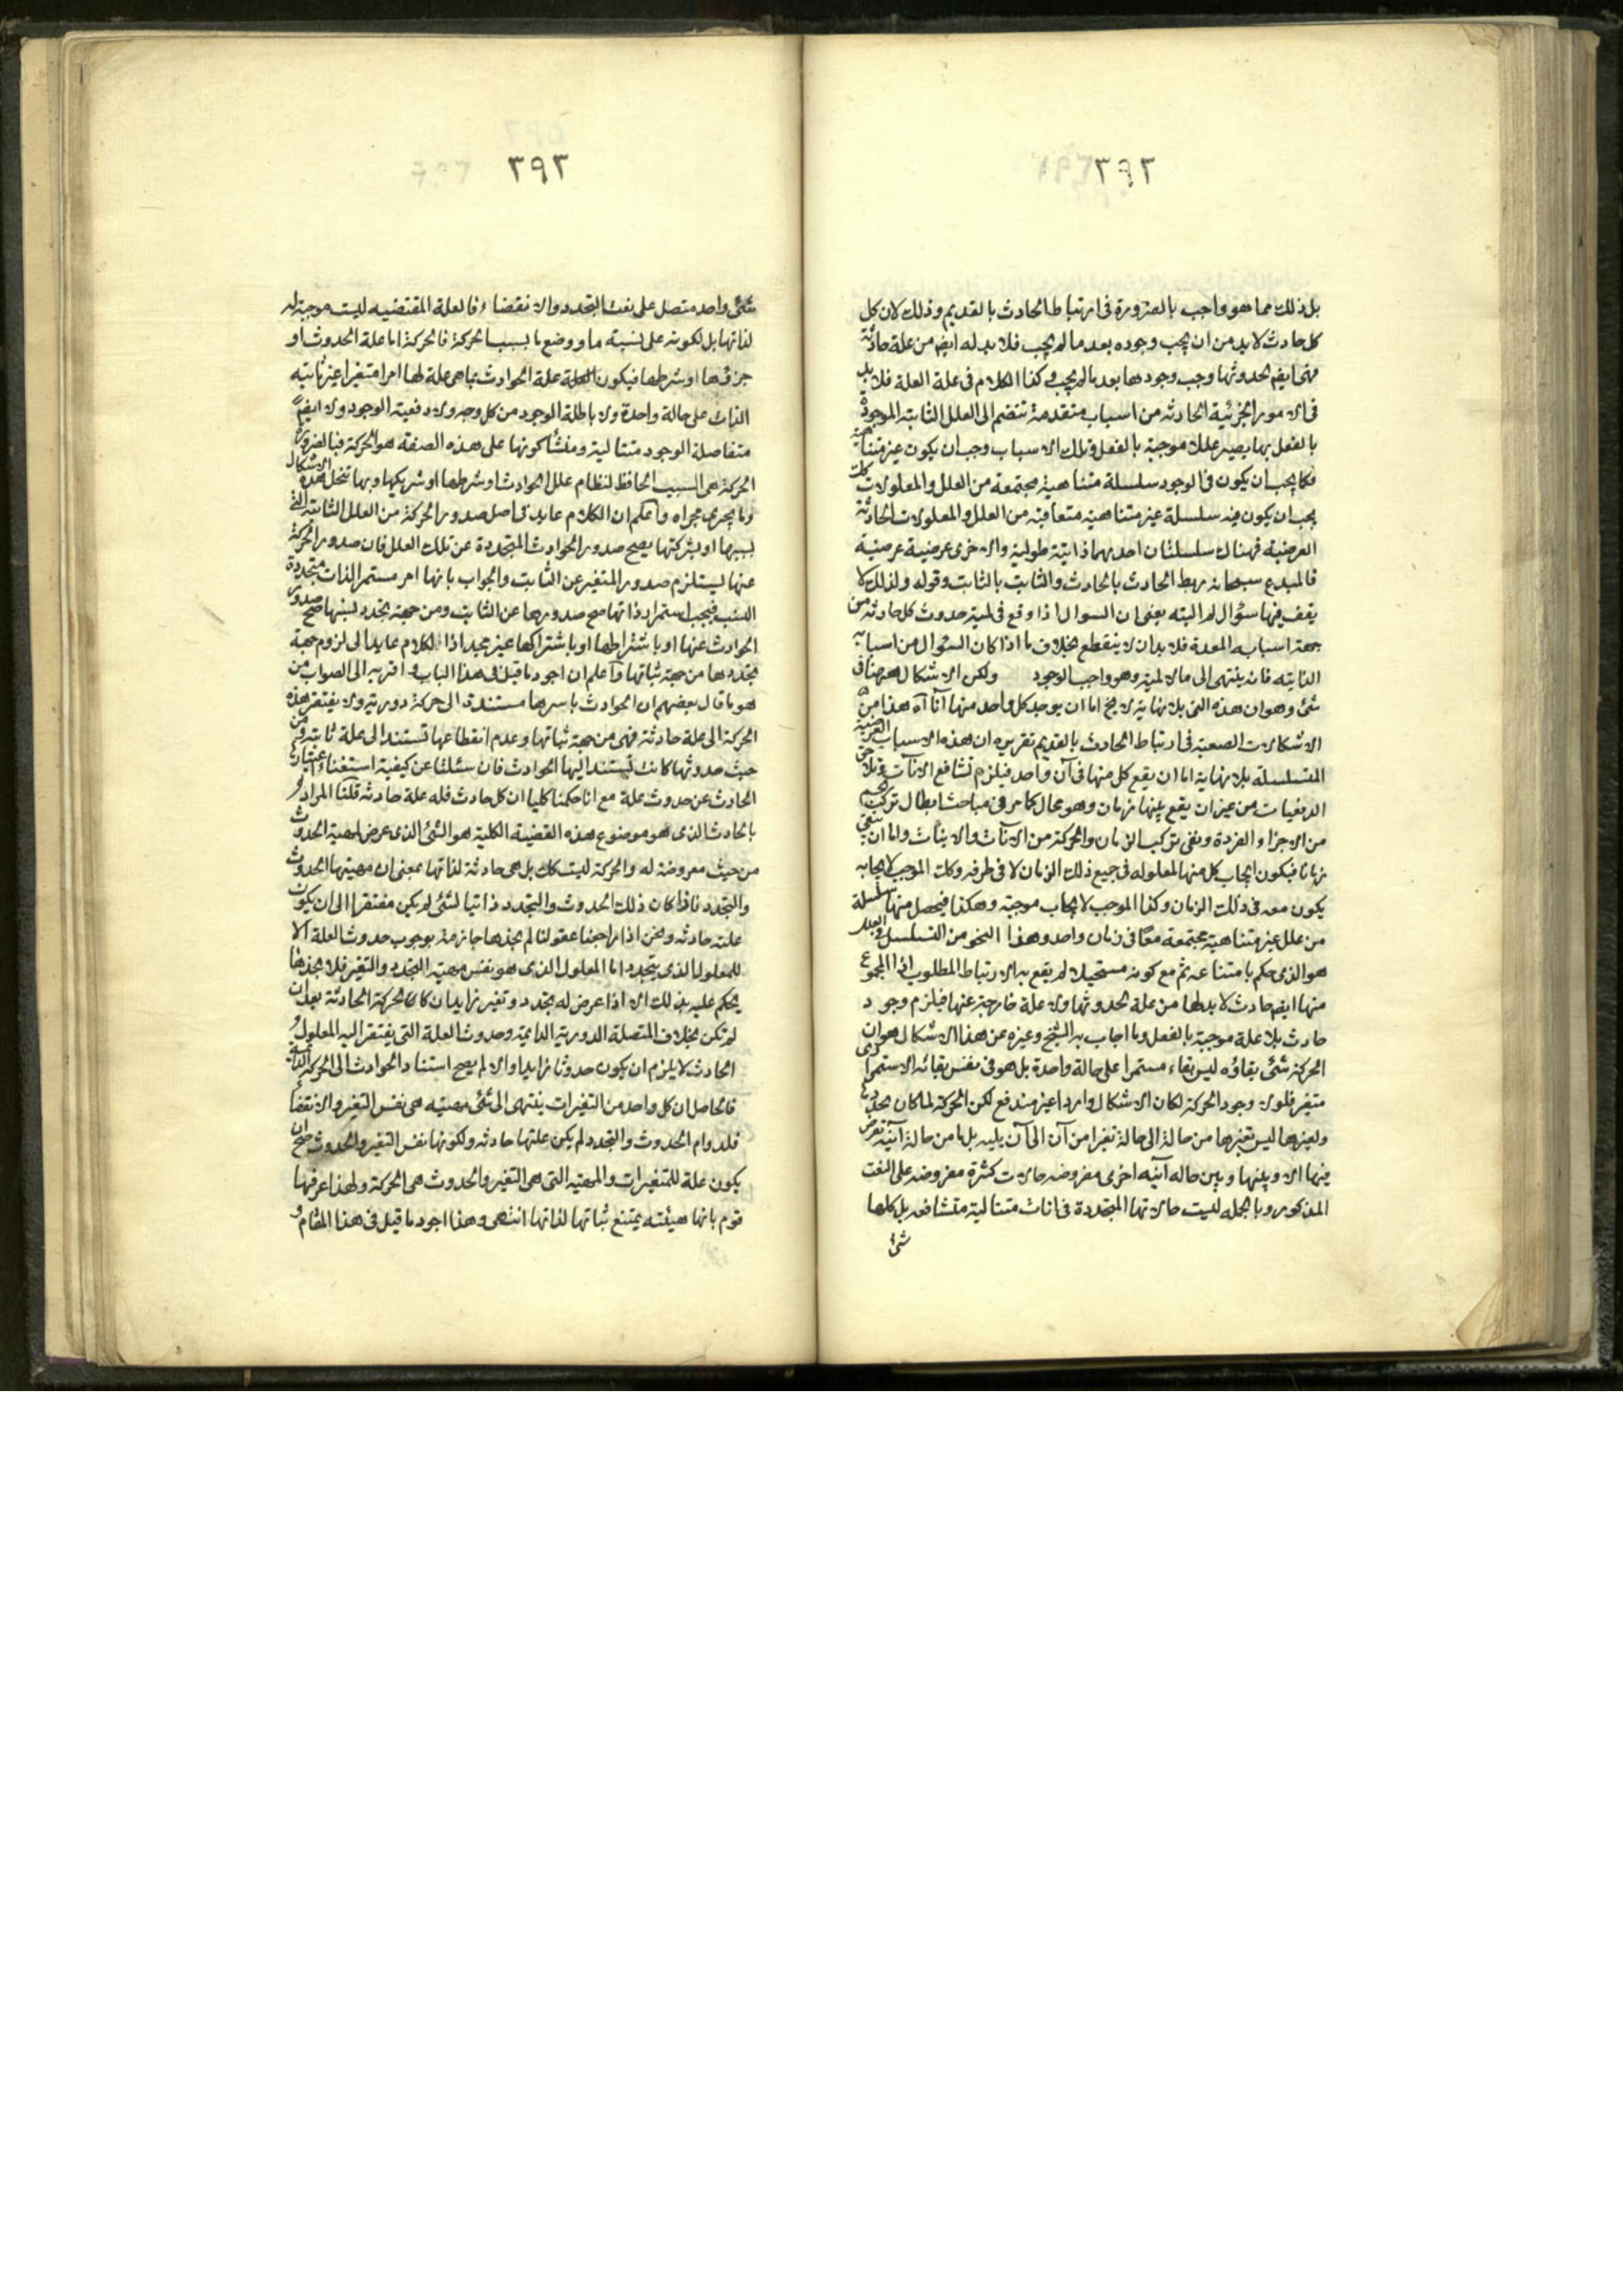 ٣٩٢
بل ذلك مما هو واجب بالضرورة فى ارتباط الحادث بالقديم وذلك لان كل
كل حادث لابد من ان يجب وجوده بعد ما لم يجب فلابد له ايضم من علة حادثة
فهى ايضم لحدوثها وجب وجودها بعد ما لم يجب وكذا الكلام فى علة العلة فلابد
فى الامور الجزئية الحادثه من اسباب متقدمة تنضم الى العلل الثابته الموجودة
بالفعل بها يصير عللا موجبة بالفعل وتلك الاسباب وجب ان يكون غير متناهية
فكما يجب ان يكون فى الوجود سلسلة متناهية مجتمعة من العلل والمعلولات كك
يجب ان يكون فيه سلسلة غير متناهيه متعاقبة من العلل والمعلولات الحادثة
العرضية فهناك سلسلتان احديهما ذاتية طولية والاخرى عرضية عرضية
فالمبدع سبحانه ربط الحادث بالحادث والثابت بالثابت وقوله ولذلك لا
يقف فيها سؤال لم البته يعنى ان السوال اذا وقع فى لمية حدوث كل حادثه من
جهة اسبابه المعدة فلابد ان لا ينقطع بخلاف ما اذا كان السؤال من اسبابه
الذاتيه فانه ينتهى الى ما لا لمية وهو واجب الوجود ولكن الاشكال ههنا فى
شئ وهو ان هذه التى بلا نهاية لا يخ اما ان يوجد كل واحد منها آنا آه هذا من
الاشكالات الصعبة فى ارتباط الحادث بالقديم تقريره ان هذه الاسباب العرضية
المتسلسلة بلا نهاية اما ان يقع كل منها فى آن واحد فيلزم تشافع الانات وتلاحق
الدفعيات من غير ان يقع بينها زمان وهو محال كما مر فى مباحث ابطال تركب الجسم
من الاجزاء الفردة ونفى تركب الزمان والحركة من الانات والاينات واما ان يبقى
زمانا فيكون ايجاب كل منها المعلوله فى جميع ذلك الزمان لا فى طرفه وكك الموجب لايجابه
يكون معه فى ذلك الزمان وكذا الموجب لايجاب موجبه وهكذا فيحصل منها سلسلة
من علل غير متناهية مجتمعة معا فى زمان واحد وهذا النحو من التسلسل
هو الذى حكم بامتناعه ثم مع كونه مستحيلا لم يقع به الارتباط المطلوب اذ المجموع
منها ايضم حادث لابد لها من علة لحدوثها ولا علة خارجة عنها فيلزم وجود
حادث بلا علة موجبة بالفعل وما اجاب به الشيخ وغيره عن هذا الاشكال هو ان
الحركة شئ بقاؤه ليس بقاء مستمرا على حالة واحدة بل هو فى نفس بقائه الاستمرارى
متغير فلولا وجود الحركة لكان الاشكال واردا غير مندفع لكن الحركة لما كان
ولغيرها ليس تغيرها من حالة الى حالة تغيرا من آن الى آن يليه بل ما من حالة آنية تفرض
فيها الا وبينها وبين حاله آنيه اخرى مفروضه حالات كثيرة مفروضه على النعت
المذكور وبالجمله ليست حالاتها المتجددة فى انات متتالية متشافعه بل كلها
شئ
٣٩٣
شئ واحد متصل على نعت التجدد والانقضاء فالعلة المقتضيه ليست موجبة له
لذاتها بل لكونه على نسبة ما ووضع ما بسبب الحركة فالحركة اما علة الحدوث او
جزؤها او شرطها فيكون العلة علة الحوادث بما هى علة لها امرا متغيرا غير ثابتة
الذات على حالة واحدة ولا باطلة الوجود من كل وجه ولا دفعية الوجود ولا ايضم
متفاصلة الوجود متتالية ومنشأ كونها على هذه الصفة هو الحركة فبالضرورة
الحركة هى السبب الحافظ لنظام علل الحوادث او شرطها او شريكها وبها تنحل هذه الاشكال
وما يجرى مجراه واعلم ان الكلام عايد فى اصل صدور الحركة من العلل الثابتة التى
بسببها او بشركتها يصح صدور الحوادث المتجددة عن تلك العلل فان صدور الحركة
عنها يستلزم صدور المتغير عن الثابت والجواب بانها امر مستمر الذات متجددة
النسب فبجهة استمرار ذاتها صح صدورها عن الثابت ومن جهة تجدد نسبها صح صدور
الحوادث عنها او باشتراطها او باشتراكها غير مجد اذا الكلام عايد الى لزوم جهة
تجددها من جهة ثباتها واعلم ان اجود ما قيل فى هذا الباب واقربه الى الصواب من
هو ما قال بعضهم ان الحوادث باسرها مستندة الى حركة دورية ولا يفتقر هذه
الحركة الى علة حادثه فهى من جهة ثباتها وعدم انقطاعها تستند الى علة ثابته ومن
حيث حدوثها كانت تستند اليها الحوادث فان سئلنا عن كيفية استغناء اعتبارها
الحادث عن حدوث علة مع انا حكمنا كليا ان كل حادث فله علة حادثه قلنا المراد
بالحادث الذى هو موضوع هذه القضية الكلية هو الشئ الذى عرض لمهيته الحدوث
من حيث معروضة له والحركة ليست كك بل هى حادثة لذاتها بمعنى ان مهيتها الحدوث
والتجدد فاذا كان ذلك الحدوث والتجدد ذاتيا لشئ لم يكن مفتقرا الى ان يكون
علته حادثه ونحن اذا راجعنا عقولنا لم نجدها جازمة بوجوب حدوث العلة الا
للمعلول الذى يتجدد اما المعلول الذى هو نفس مهية التجدد والتغير فلا نجدها
يحكم عليه بذلك الا اذا عرض له تجدد وتغير زايدان كالحركة الحادثة بعد ان
لم تكن بخلاف المتصلة الدورية الدايمة وحدوث العلة التى يفتقر اليه المعلول
الحادث لا يلزم ان يكون حدوثا زايدا والا لم يصح استناد الحوادث الى الحركة الدائمة
فالحاصل ان كل واحد من التغيرات ينتهى الى شئ مهيته هى نفس التغير والانقضا
فلدوام الحدوث والتجدد لم يكن علتها حادثه ولكونها نفس التغير والحدوث صح ان
يكون علة للمتغيرات والمهية التى هى التغير والحدوث هى الحركة ولهذا عرفها
قوم بانها هيئة يمتنع ثباتها لذاتها انتهى وهذا اجود ما قيل فى هذا المقام و